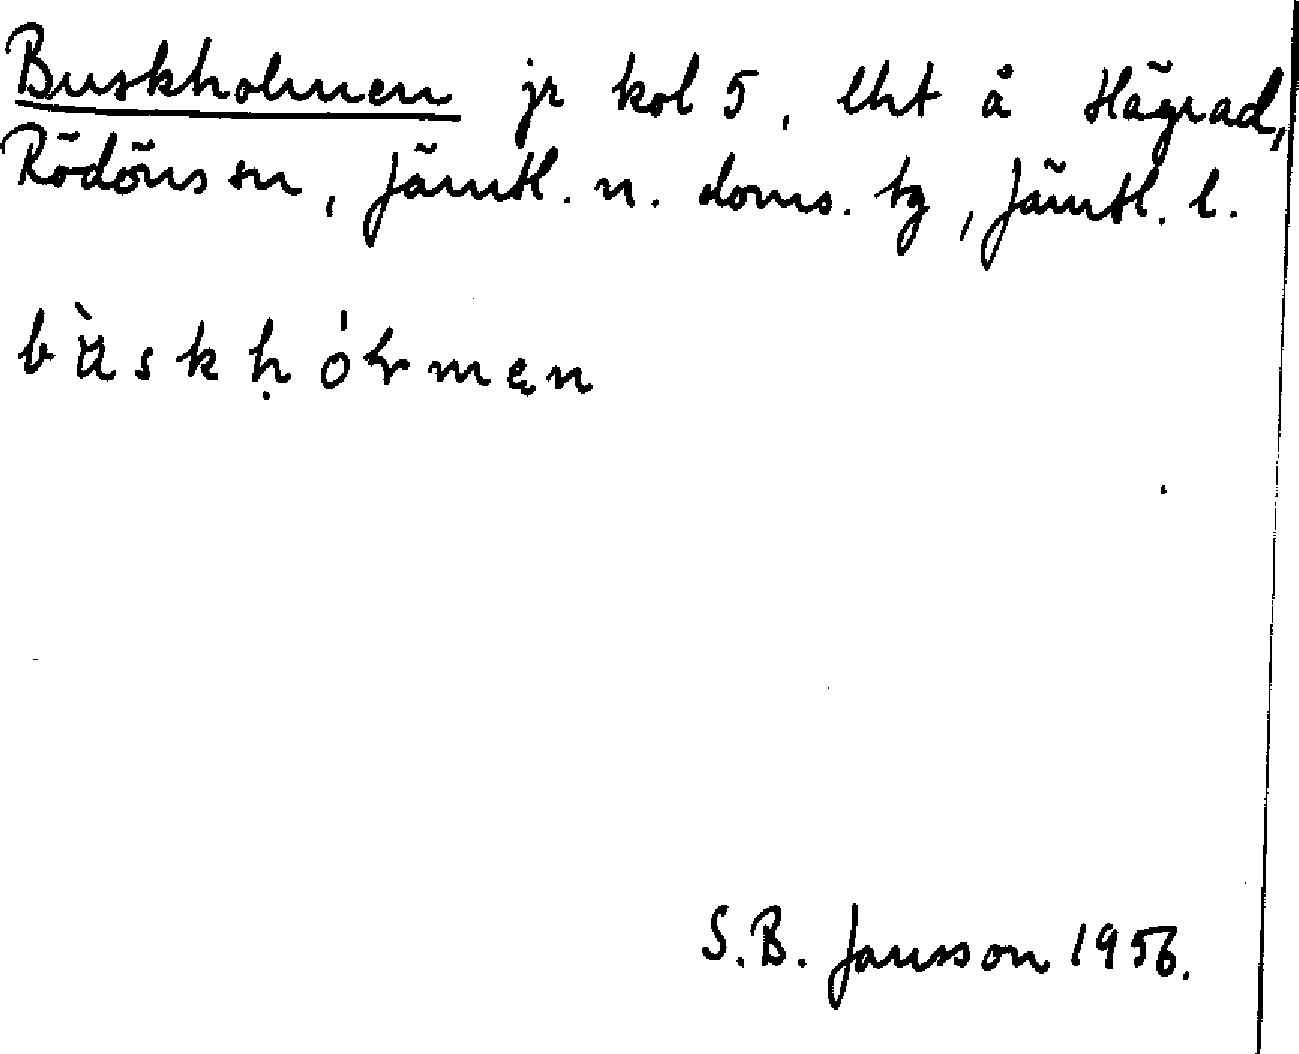 Buskholmen jr kol 5, lht å Hägrad,
Rödöns sn, Jämtl. n. doms. tg, Jämtl. l.
S.B. Jansson 1956.